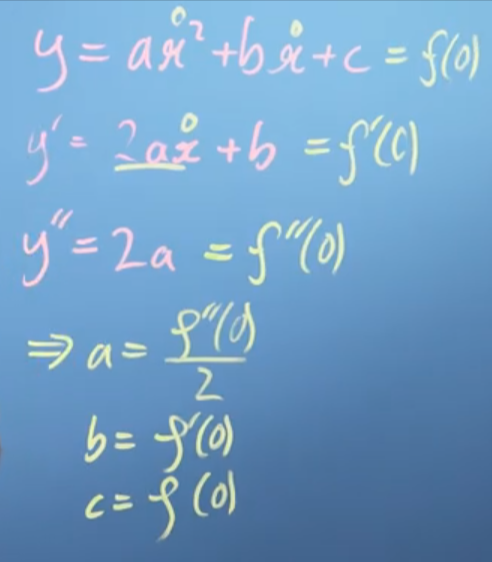 y = ax² + bx + c = f(0)
y' = 2ax + b = f'(0)
y'' = 2a = f''(0)
⇒ a = f''(0)/2
b = f'(0)
c = f(0)